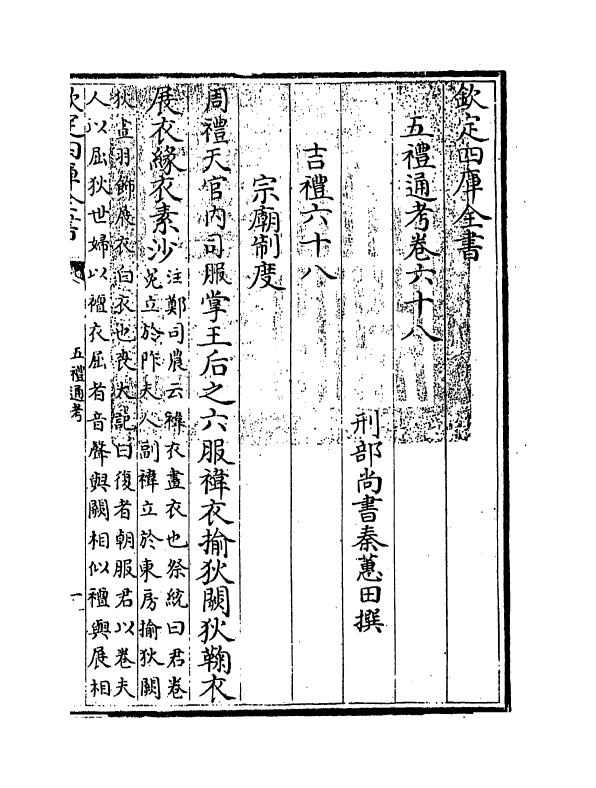 欽定四庫全書
五禮通考卷六十八
刑部尚書秦蕙田撰
吉禮六十八
宗廟制度
周禮天官内司服掌王后之六服褘衣揄狄闕狄鞠衣
展衣緣衣素沙
注鄭司農云褘衣畫衣也祭統曰君卷
冕立於阼夫人副褘立於東房揄狄闕
狄畫羽飾展衣白衣也喪大記曰復者朝服君以卷夫
人以屈狄世婦以襢衣屈者音聲與闕相似襢與展相
欽定四庫全書
五禮通考
一